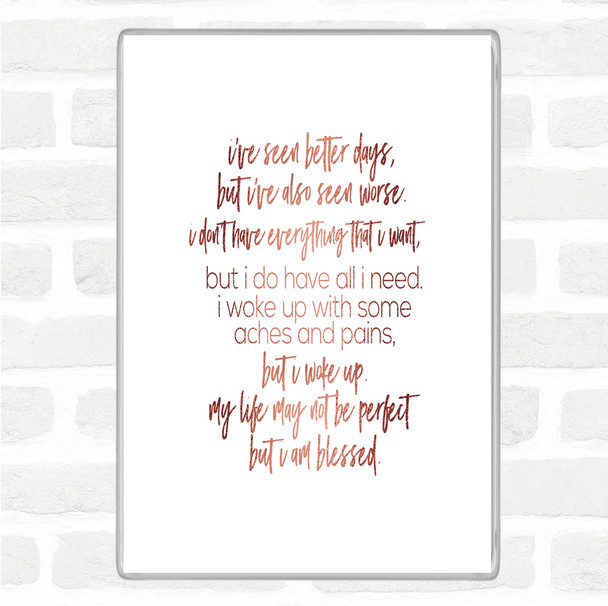 i've seen better days,
but i've also seen worse.
i don't have everything that i want,
but i do have all i need.
i woke up with some
aches and pains,
but i woke up.
my life may not be perfect
but i am blessed.